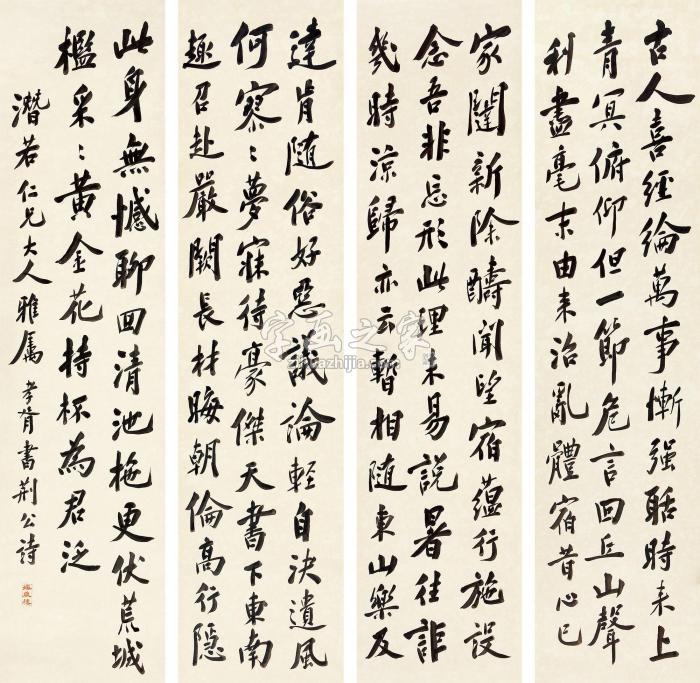 古人喜經綸萬事慚强聒時来上
青冥俯仰但一節危言回丘山聲
利盡毫末由来治亂體宿昔心已
家闥新除醻聞望宿蘊行施設
念吾非忘形此理未易說暑往詎
幾時涼歸亦云暫相隨東山樂及
達肯隨俗好惡議論輕自決遺風
何寥〻夢寐待豪傑天書下東南
趣召赴嚴闕長材晦朝倫高行隱
此身無憾聊回清池拖更伏荒城
檻采〻黃金花持杯為君泛
潛若仁兄大人雅屬 孝胥書荆公詩
字画之家
zihuazhijia.com